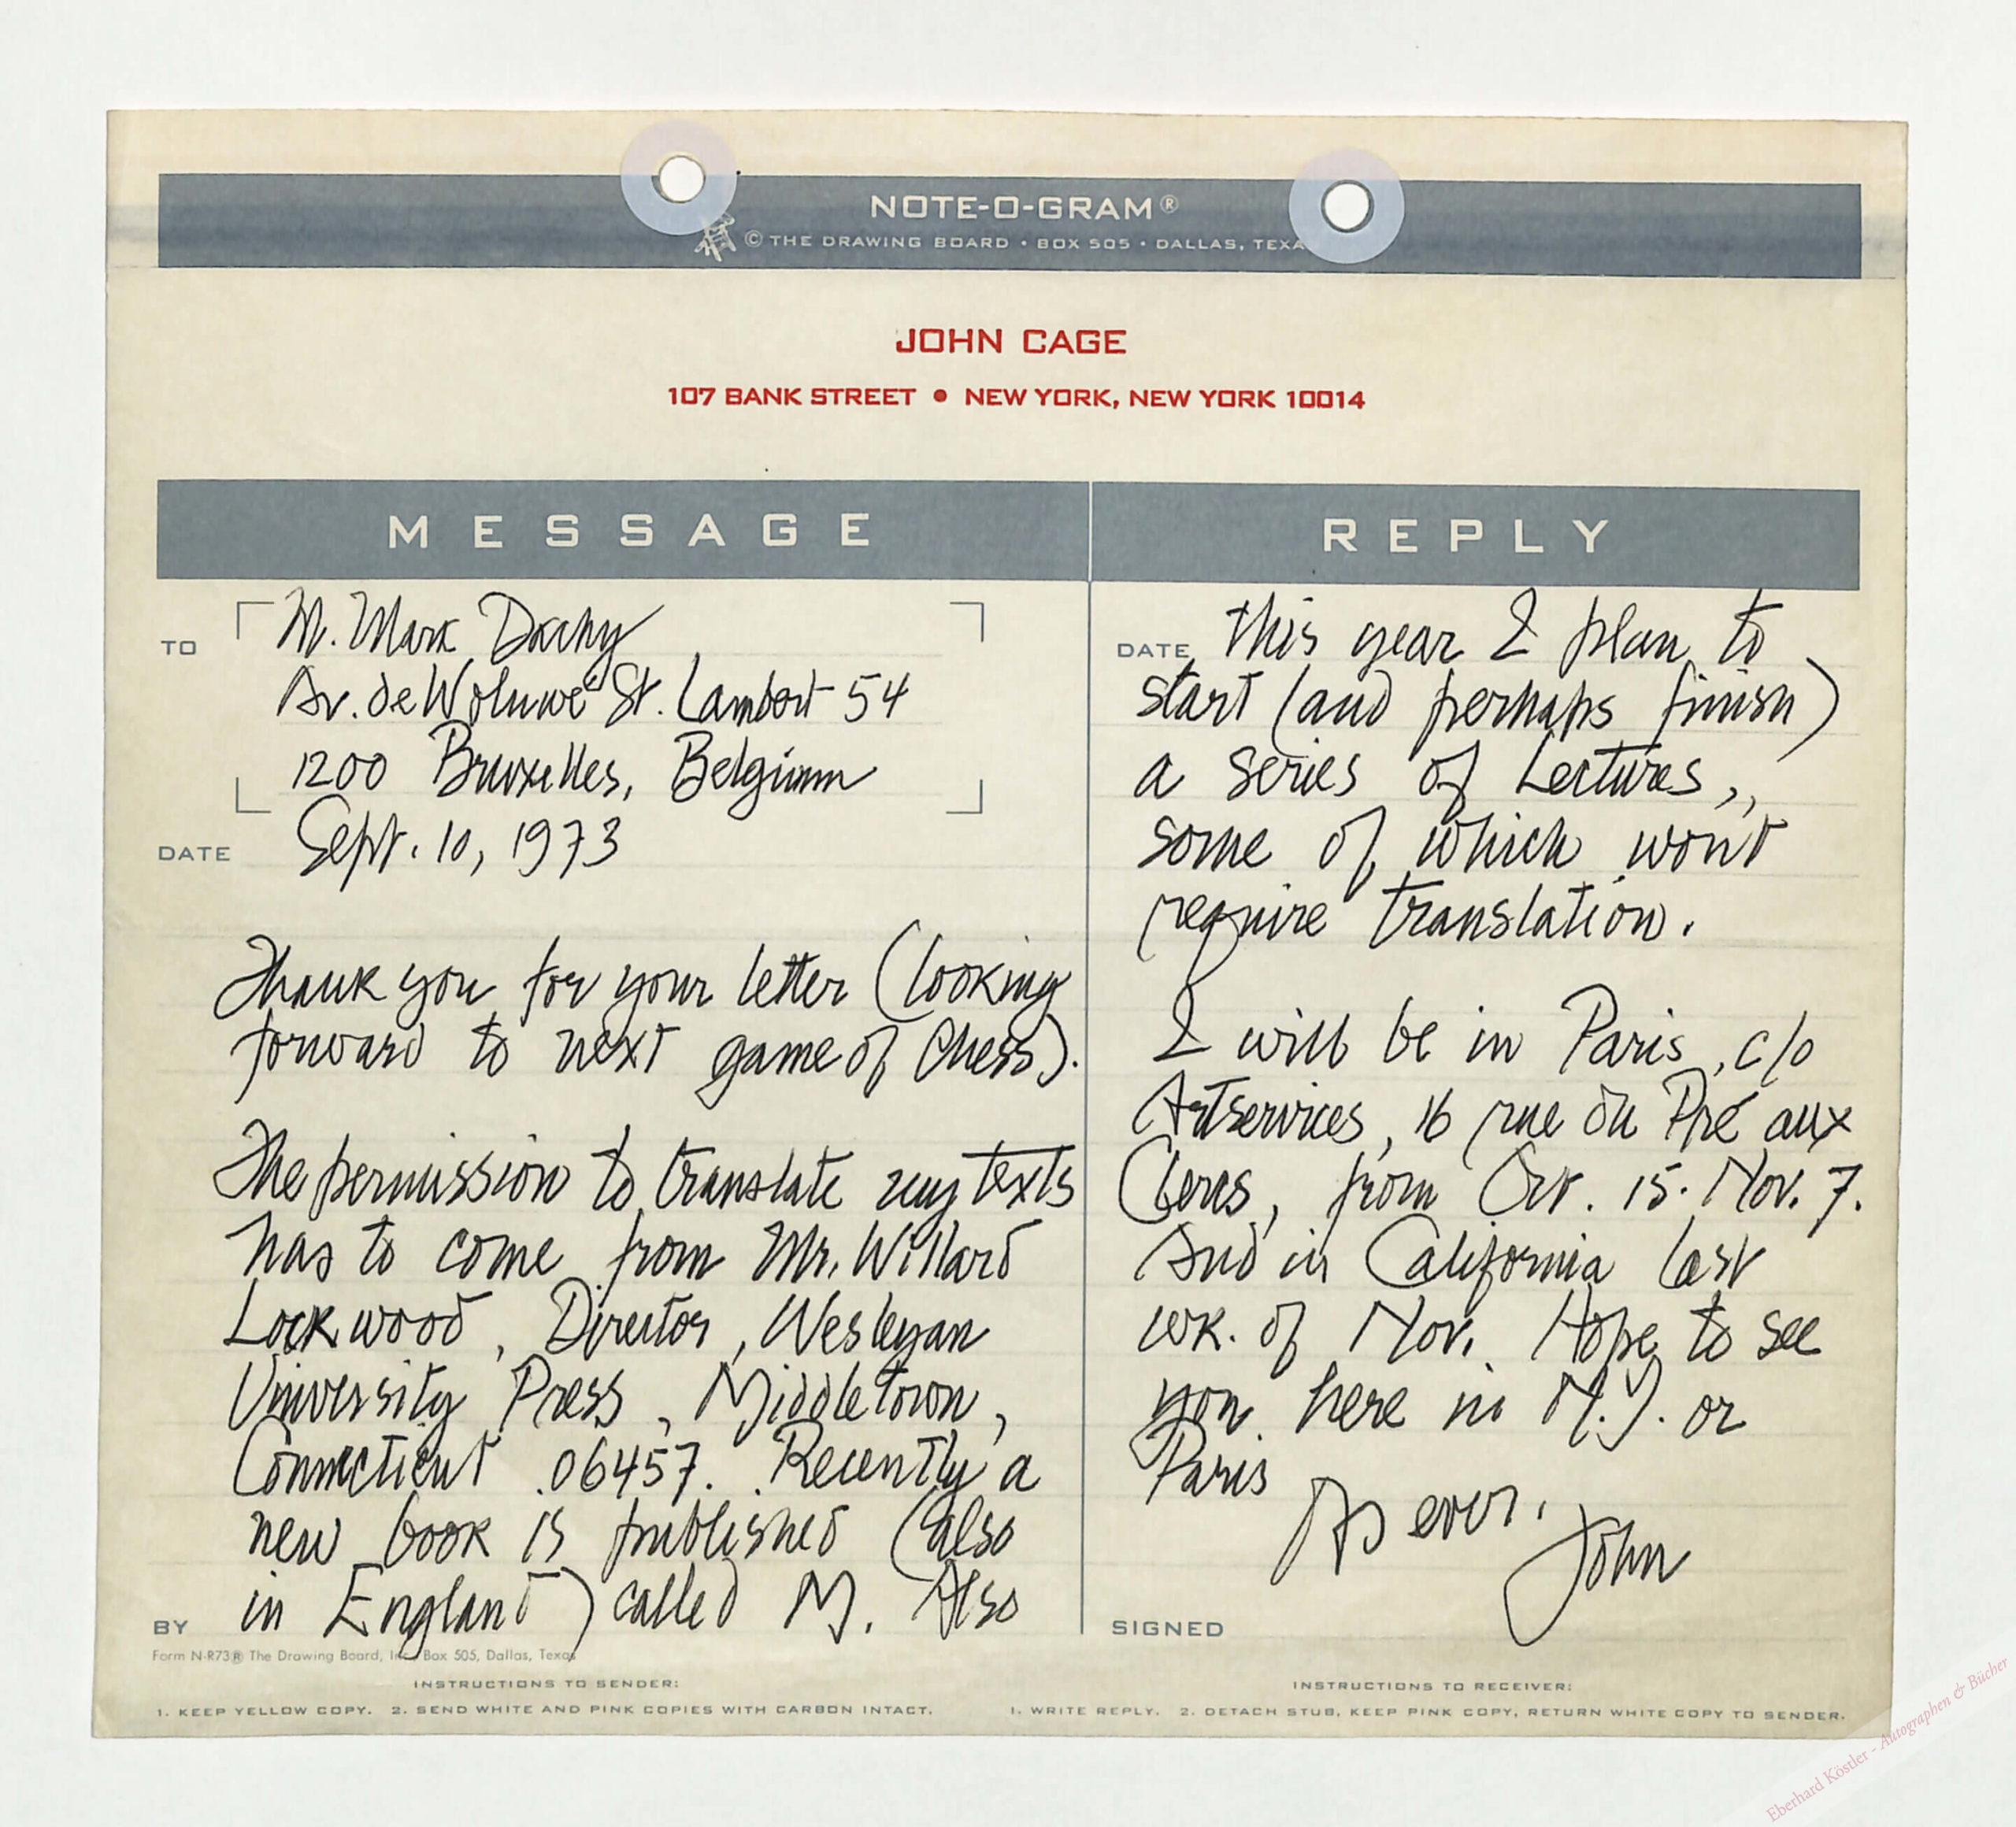 NOTE-O-GRAM®
© THE DRAWING BOARD • BOX 505 • DALLAS, TEXA
JOHN CAGE
107 BANK STREET • NEW YORK, NEW YORK 10014
MESSAGE
TO
M. Mark Dachy
Av. de Woluwé St. Lambert 54
1200 Bruxelles, Belgium
DATE
Sept. 10, 1973
Thank you for your letter (looking
forward to next game of Chess).
The permission to translate my texts
has to come from Mr. Willard
Lockwood, Director, Wesleyan
University Press, Middletown,
Connecticut 06457. Recently a
new book is published (also
in England) called M. Also
BY
REPLY
DATE
this year I plan to
start (and perhaps finish)
a series of Lectures,
some of which won't
require translation.
I will be in Paris, c/o
Artservices, 16 rue du Pré aux
Clercs, from Oct. 15 - Nov. 7.
And in California last
wk. of Nov. Hope to see
you here in N.Y. or
Paris
As ever,
John
SIGNED
Form N-R73® The Drawing Board, Inc., Box 505, Dallas, Texas
INSTRUCTIONS TO SENDER:
1. KEEP YELLOW COPY. 2. SEND WHITE AND PINK COPIES WITH CARBON INTACT.
INSTRUCTIONS TO RECEIVER:
1. WRITE REPLY. 2. DETACH STUB, KEEP PINK COPY, RETURN WHITE COPY TO SENDER.
Eberhard Köstler - Autographen & Bücher